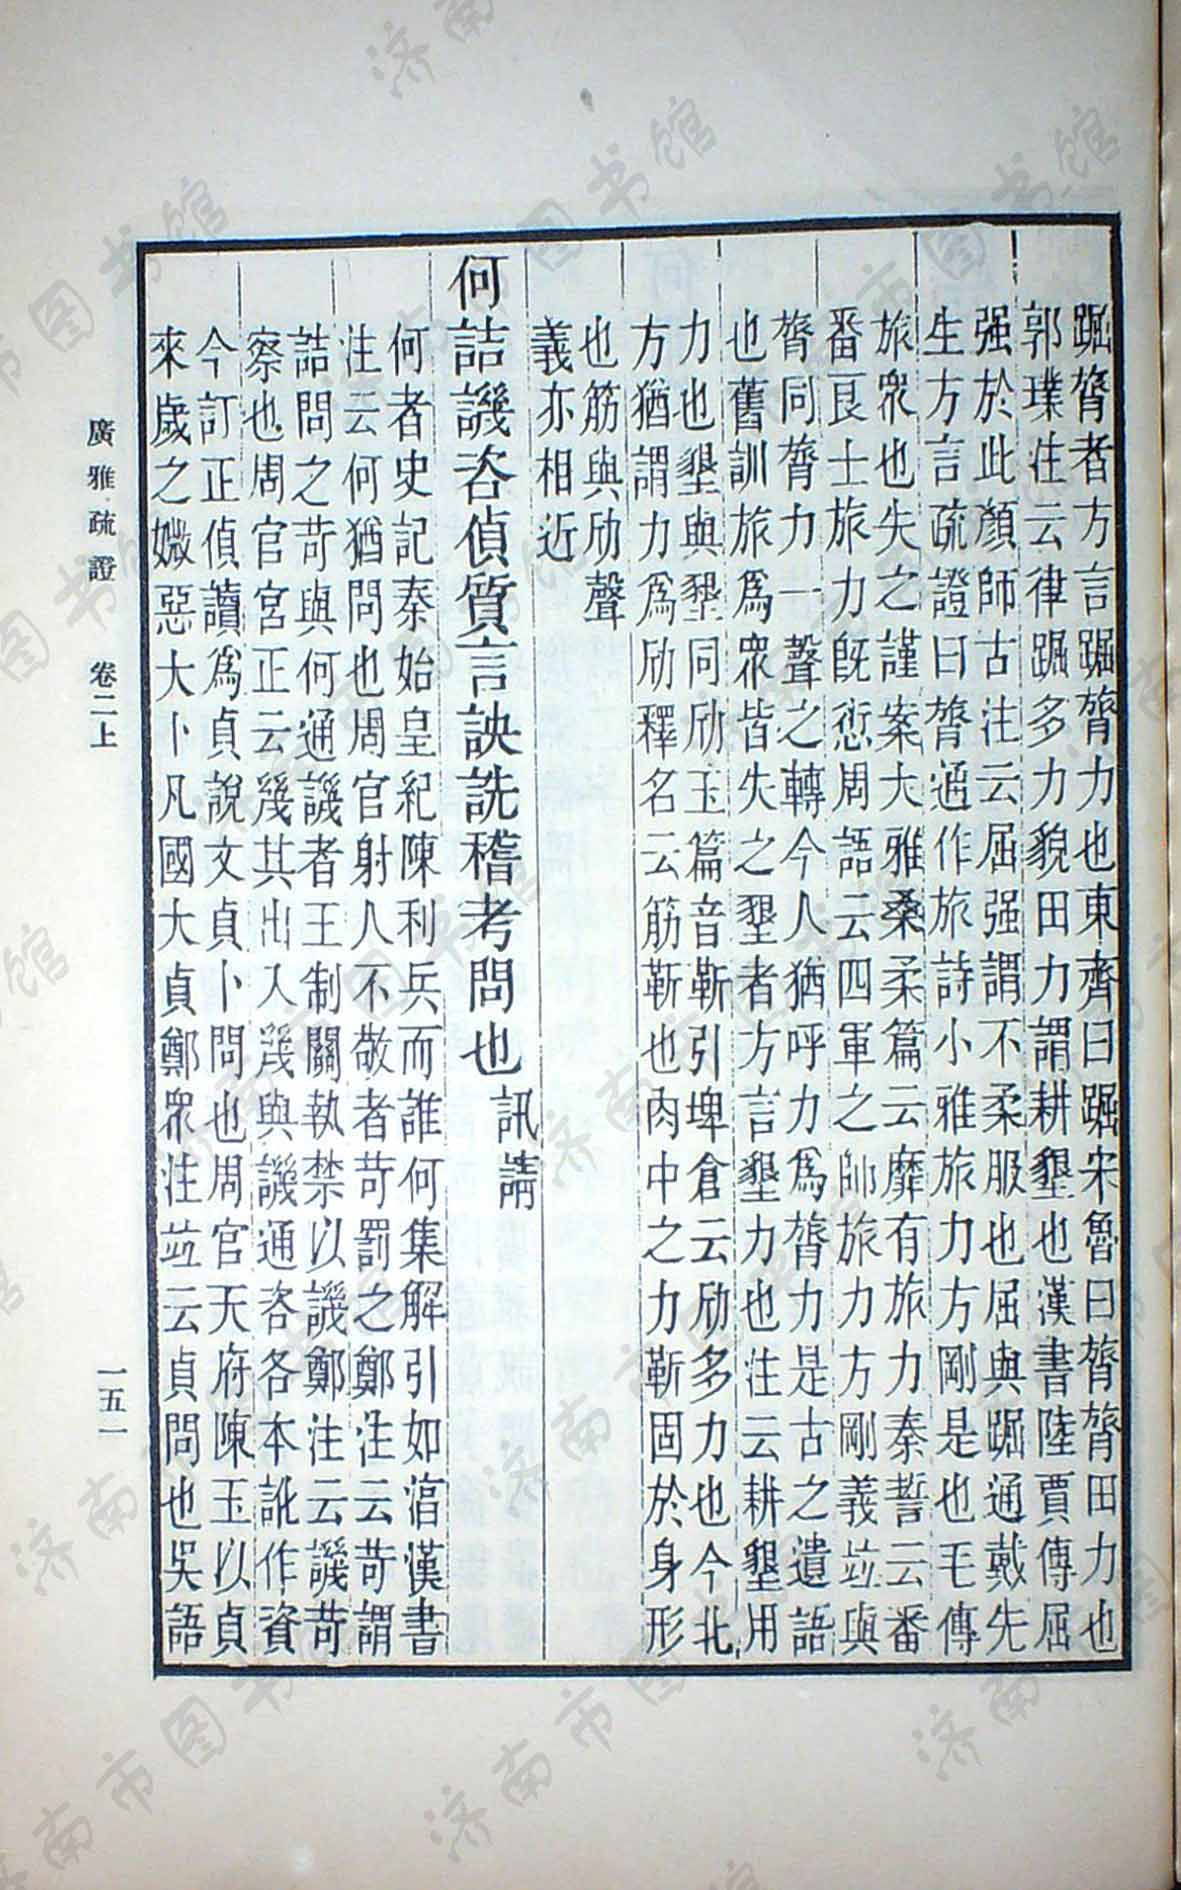 䠇膂者方言䠇膂力也東齊曰䠇宋魯曰膂膂田力也
郭璞注云律䠇多力貌田力謂耕墾也漢書陸賈傳屈
强於此顏師古注云屈强謂不柔服也屈與䠇通戴先
生方言疏證曰膂通作旅詩小雅旅力方剛是也毛傳
旅眾也失之謹案大雅桑柔篇云靡有旅力秦誓云番
番良士旅力旣愆周語云四軍之帥旅力方剛義竝與
膂同膂力一聲之轉今人猶呼力爲膂力是古之遺語
也舊訓旅爲眾皆失之墾者方言墾力也注云耕墾用
力也墾與墾同劤玉篇音靳引埤倉云劤多力也今北
方猶謂力爲劤釋名云筋靳也肉中之力靳固於身形
也筋與劤聲
義亦相近
何詰譏咨偵質言訣詵稽考問也訊請
何者史記秦始皇紀陳利兵而誰何集解引如淳漢書
注云何猶問也周官射人不敬者苛罰之鄭注云苛謂
詰問之苛與何通譏者王制關執禁以譏鄭注云譏苛
察也周官宮正云幾其出入幾與譏通咨各本訛作資
今訂正偵讀爲貞說文貞卜問也周官天府陳玉以貞
來歲之媺惡大卜凡國大貞鄭眾注竝云貞問也吳語
廣雅疏證 卷二上
一五一
济南市图书馆